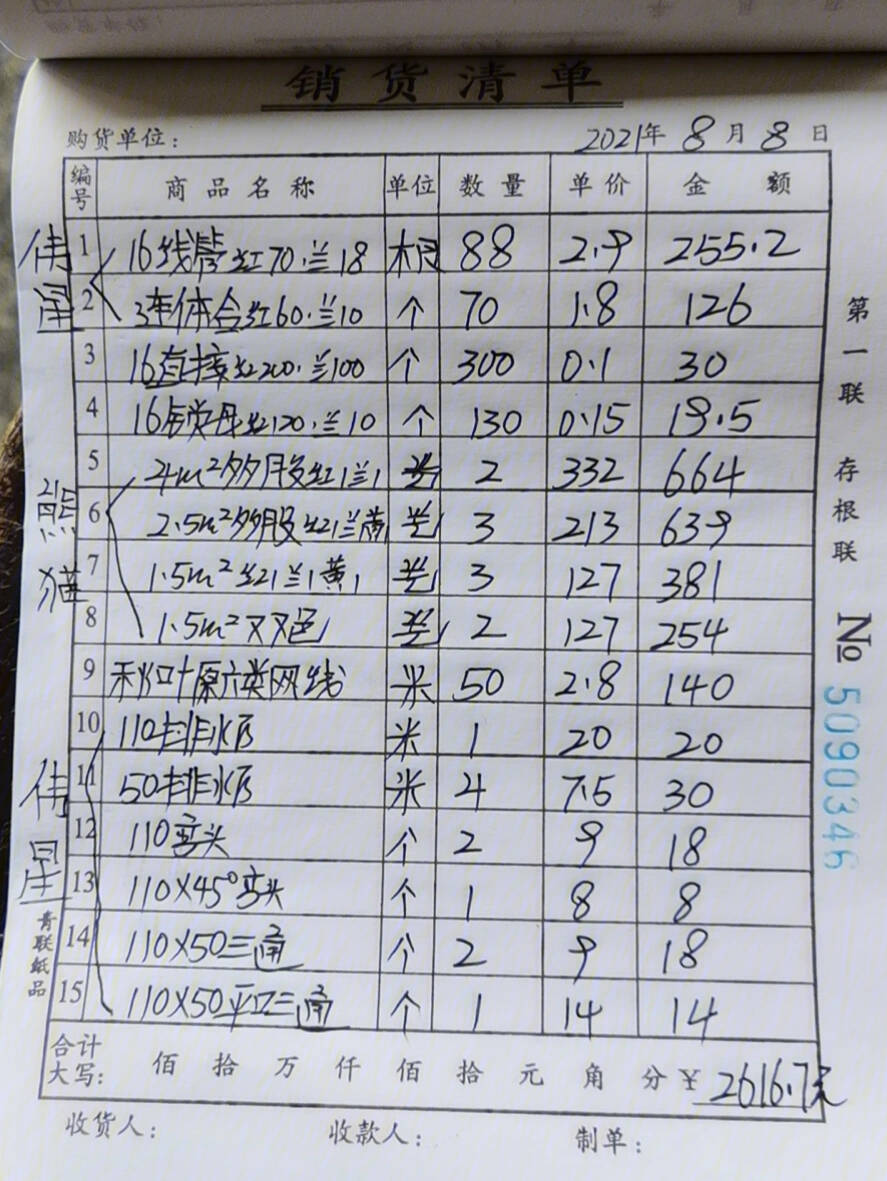 销货清单
购货单位： 2021年 8月 8日
编号 商品名称 单位 数量 单价 金额
伟星
1 16线管红70.兰18 根 88 2.9 255.2
2 3车体合红60.兰10 个 70 1.8 126
3 16直接红200.兰100 个 300 0.1 30
4 16锁母红120.兰10 个 130 0.15 19.5
熊猫
5 4m²多股红1兰1 卷 2 332 664
6 2.5m²多股红1兰1黄1 卷 3 213 639
7 1.5m²红1兰1黄1 卷 3 127 381
8 1.5m²双色 卷 2 127 254
9 秋叶原六类网线 米 50 2.8 140
伟星
10 110排水管 米 1 20 20
11 50排水管 米 4 7.5 30
12 110弯头 个 2 9 18
13 110X45°弯头 个 1 8 8
14 110X50三通 个 2 9 18
15 110X50平口三通 个 1 14 14
合计大写： 佰 拾 万 仟 佰 拾 元 角 分 ¥2616.7元
收货人： 收款人： 制单：
第一联 存根联
№ 5090346
青联纸品